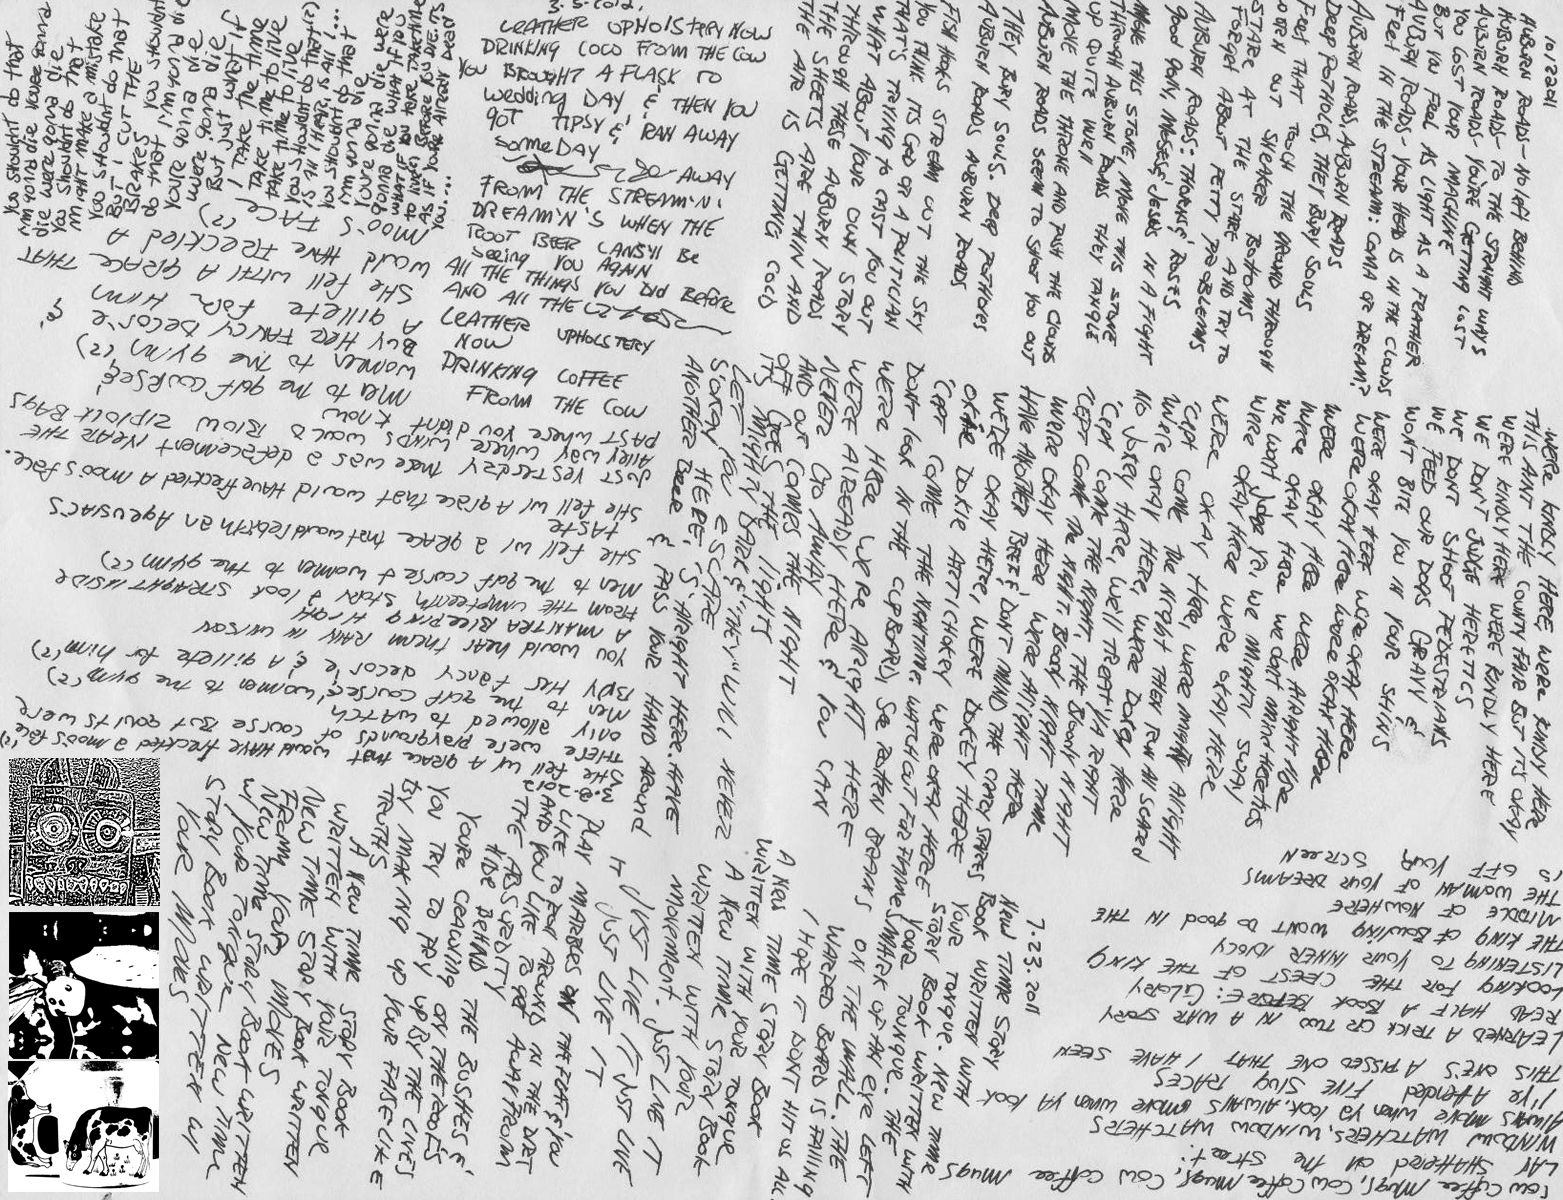 3.5.2012.
LEATHER UPHOLSTERY NOW
DRINKING COCO FROM THE COW
YOU BROUGHT A FLASK TO
wedding DAY & THEN YOU
GOT TIPSY & RAN AWAY
Someday
AWAY
FROM THE STREAM'N'
DREAM'N'S WHEN THE
ROOT BEER CANS'll Be
Seeing YOU AGAIN
All THE THINGS YOU DID Before
AND All THE
LEATHER UPHOLSTERY
NOW
DRINKING COFFEE
FROM THE COW
You shouldn't do that
I'm gonna die you're gonna
die we're gonna die
You shouldn't do that
I might make a mistake
You shouldn't do that
But I cut the
BRAKES
do that I'm gonna die
You're gonna die
we're gonna die
But just what if
I take the time
take the time
take time to live
You shouldn't do that
is all I hear, is all I...
You shouldn't do that
I'm gonna die
You're gonna die we're
gonna die what if you
WHAT IF YOU take the time
to live before you die. its
As if you're already dead
you....
she fell with a grace that
would have freckled a
moo's face (2)
Buy Her Fancy Decor'e &
A gillete for Him
men to the golf course &
women to the gym (2)
Just yesterday there was a defacement near the
Alley way where winds would blow ziplock bags
past where you didn't know
she fell w/ a grace that would have freckled a moo's face.
she fell w/ a grace that would rebirth an Ageusiac's
taste
Men to the golf course & women to the gym (2)
from the umpteenth story I look straight
A mantra bleeping High
You would hear them rain in unison
Buy Her Fancy decor'e & A gillete for him (2)
Men to the golf course & women to the gym (2)
only allowed to watch
There were playgrounds of course But adults were
She fell w/ A grace that would have freckled a moo's face (2)
10.1.2011
AUBURN ROADS - NO LEFT BEHIND
AUBURN ROADS - TO THE STRAIGHT WAYS
AUBURN ROADS - YOU'RE GETTING LOST
YOU LOST YOUR MACHINE
BUT YOU FEEL AS LIGHT AS A FEATHER
AUBURN ROADS - YOUR HEAD IS IN THE CLOUDS
Feet IN THE STREAM: COMA OR DREAM?
AUBURN ROADS, AUBURN ROADS
DEEP POTHOLES, THEY BURY SOULS
Feet THAT TOUCH THE GROUND THROUGH
WORN OUT SNEAKER BOTTOMS
STARE AT THE STARE AND TRY TO
FORGET ABOUT PETTY PROBLEMS
AUBURN ROADS: THORNS & ROSES
good guy moses & jesus IN A FIGHT
MOVE THIS STONE, MOVE THIS STONE
THROUGH AUBURN ROADS THEY TANGLE
UP QUITE Well
MOVE THE THRONE AND PUSH THE CLOUDS
AUBURN ROADS SEEM TO SHOOT YOU OUT
THEY BURY SOULS, DEEP POTHOLES
AUBURN ROADS AUBURN ROADS
FISH HOOKS STREAM OUT THE SKY
YOU THINK ITS GOD OR A POLITICIAN
THAT'S TRYING to CAST YOU OUT
WHAT ABOUT YOUR OWN STORY
THROUGH THESE AUBURN ROADS
THE SHEETS ARE THIN AND
THE AIR IS GETTING COLD
WERE KINDLY HERE WERE KINDLY HERE
THIS AIN'T THE COUNTY FAIR BUT ITS OKAY
WERE KINDLY HERE WERE KINDLY HERE
WE DON'T JUDGE HERETICS
WE DON'T SHOOT PEDESTRIANS
WE FEED OUR DOGS GRAVY &
WON'T BITE YOU IN YOUR SHINS
WERE OKAY HERE WERE OKAY HERE
WERE OKAY HERE WERE OKAY HERE
WERE OKAY HERE WERE OKAY HERE
WERE OKAY HERE WERE ALRIGHT HERE
we won't judge ya, we don't mind Heretics
WERE OKAY HERE we mighty sway
WERE OKAY HERE WERE OKAY HERE
'cept come the night then run all scared
No Jokey HERE, WERE DOKEY HERE
'cept come THE NIGHT, we'll TREAT YA RIGHT
WERE OKAY HERE WERE ALRIGHT HERE
'CEPT COME the NIGHT, THE BLOODY NIGHT
HAVE ANOTHER BEER & DON'T MIND THE
WERE OKAY HERE, WERE DOKEY HERE
OKIE DOKIE ARTICHOKEY WERE OKAY HERE
'cept come THE NIGHTTIME WATCH OUT FOR
DON'T look IN THE CUPBOARD, SEE ROTTEN BRAINS
WERE HERE WERE ALRIGHT HERE
WERE ALREADY HERE & YOU CAN
NEVER GO AWAY
AND OUT COMES THE NIGHT
OFF GOES THE LIGHTS
IT'S MIGHTY DARK & "THEY" WILL NEVER
LET YOU ESCAPE
S'OKAY HERE, S'ALRIGHT HERE. HAVE
ANOTHER Beer & PASS YOUR HAND AROUND
3.8.2012
PLAY MARBLES ON THE FLOAT & YOU
LIKE to FOOL AROUND IN THE DIRT
AND YOU LIKE to get AWAY FROM
THE ABSURDITY
HIDE BEHIND THE BUSHES &
YOU'RE CRAWLING ON THE ROOFS
YOU TRY TO PRY UPSY THE LIVES
BY MAKING UP YOUR FALSE LIKE
TRUTHS
A NEW TIME STORY BOOK
WRITTEN WITH YOUR TONGUE
NEW TIME STORY BOOK WRITTEN
FROM YOUR MOVIES
NEW TIME STORY BOOK WRITTEN
w/ YOUR TONGUE. NEW TIME
STORY BOOK WRITTEN w/
YOUR MOVIES
7.23.2011
NEW TIME STORY
BOOK WRITTEN WITH
YOUR TONGUE. NEW TIME
STORY BOOK WRITTEN WITH
YOUR TOUNGUE. THE
MARK OF AN EYE LEFT
ON THE WALL. THE
WARDED BOARD IS FALLING
I HOPE IT DON'T HIT US ALL
A NEW TIME STORY BOOK
WRITTEN WITH YOUR TONGUE
A NEW TIME STORY BOOK
WRITTEN WITH YOUR
MOVEMENT. JUST LIVE IT
JUST LIVE IT JUST LIVE
IT JUST LIVE IT
COW COFFEE MUGS, COW COFFEE MUGS, COW COFFEE MUGS
LAY SHATTERED ON THE STREET:
WINDOW WATCHERS, WINDOW WATCHERS
Always move when ya look, Always move when ya look
I'VE Attended FIVE SLUG RACES
THIS ONE'S A MISSED ONE THAT I HAVE SEEN
LEARNED A TRICK OR TWO IN A WAR STORY
READ HALF A BOOK BEFORE: GLORY
LOOKING FOR THE CREST OF THE KING
LISTENING TO YOUR INNER IDIOCY
THE KING OF BOWLING WON'T DO good IN THE
MIDDLE OF NOWHERE
THE WOMAN OF YOUR DREAMS
IS OFF YOUR SCREEN